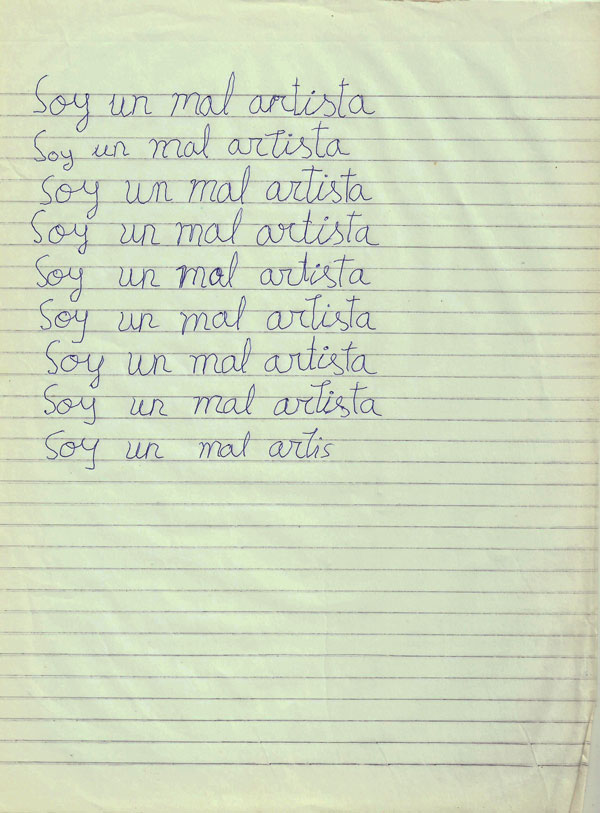 Soy un mal artista
Soy un mal artista
Soy un mal artista
Soy un mal artista
Soy un mal artista
Soy un mal artista
Soy un mal artista
Soy un mal artista
Soy un mal artis